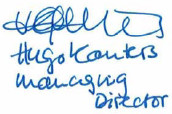 Hugo Kanters
Managing
Director